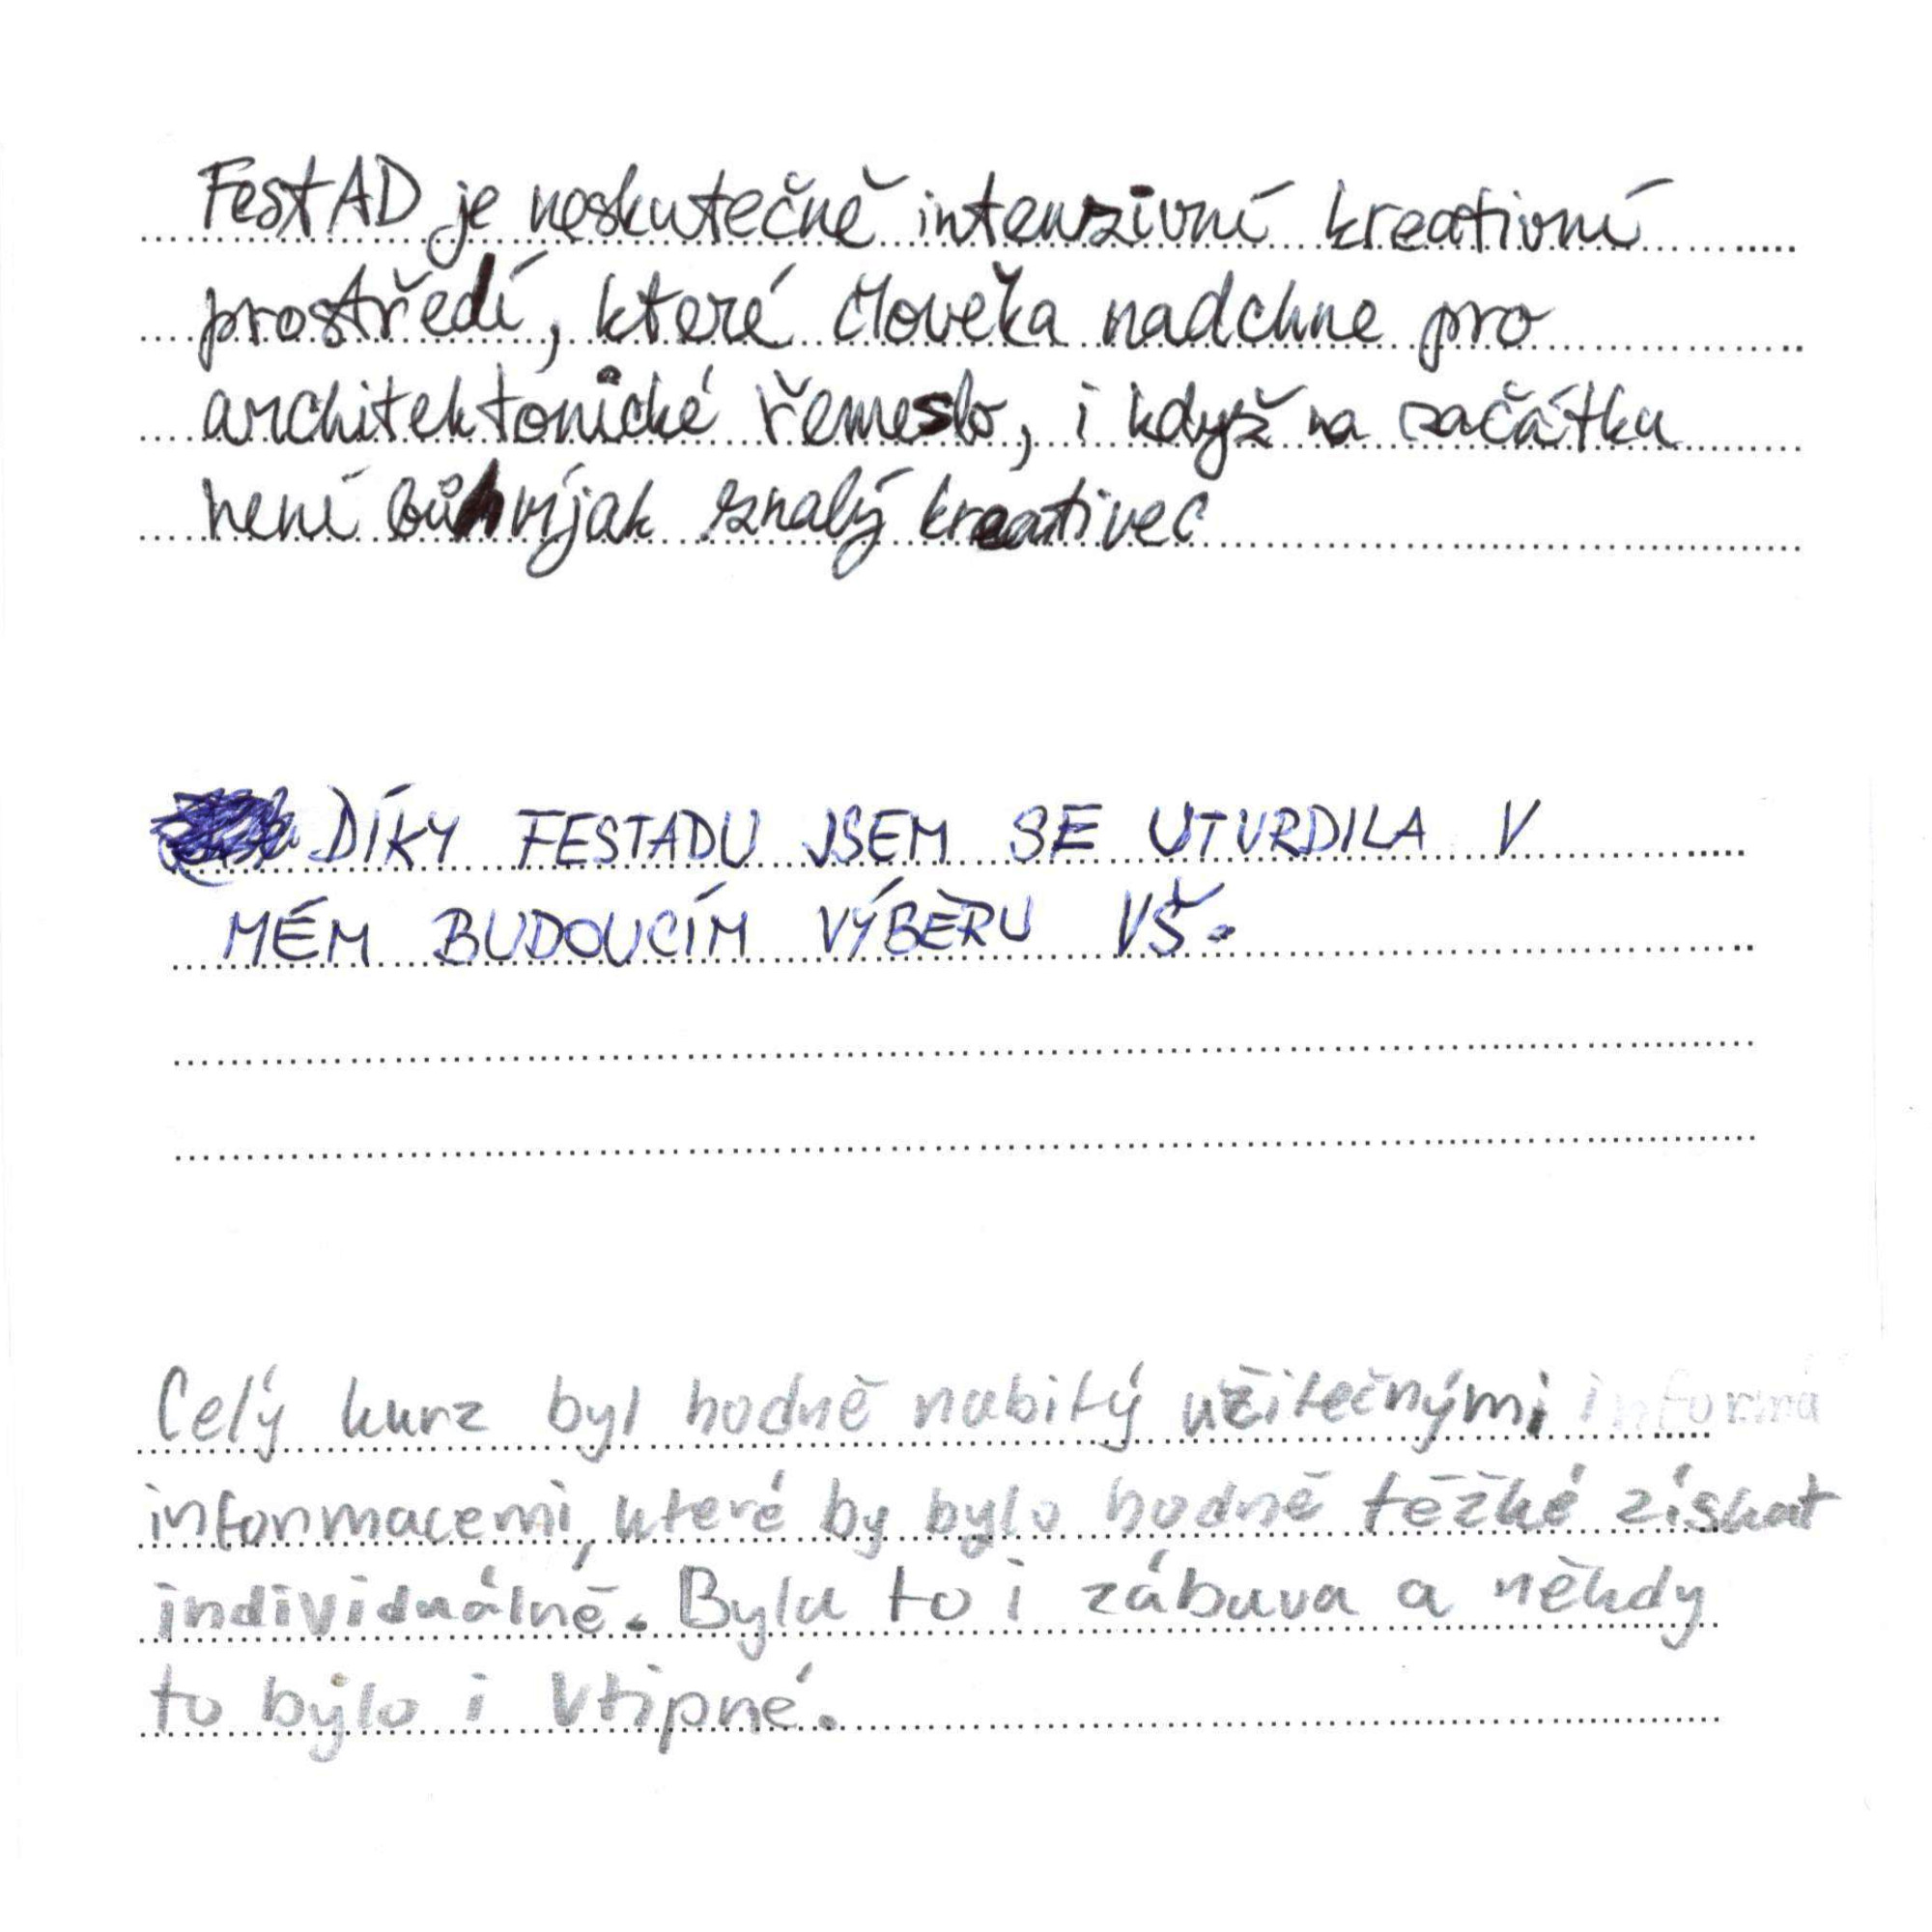 FestAD je neskutečně intenzivní kreativní
prostředí, které člověka nadchne pro
architektonické řemeslo, i když na začátku
není bůhvíjak znalý kreativec
DÍKY FESTADU JSEM SE UTVRDILA V
MÉM BUDOUCÍM VÝBĚRU VŠ.
Celý kurz byl hodně nabitý užitečnými informa
informacemi, které by bylo hodně těžké získat
individuálně. Byla to i zábava a někdy
to bylo i vtipné.